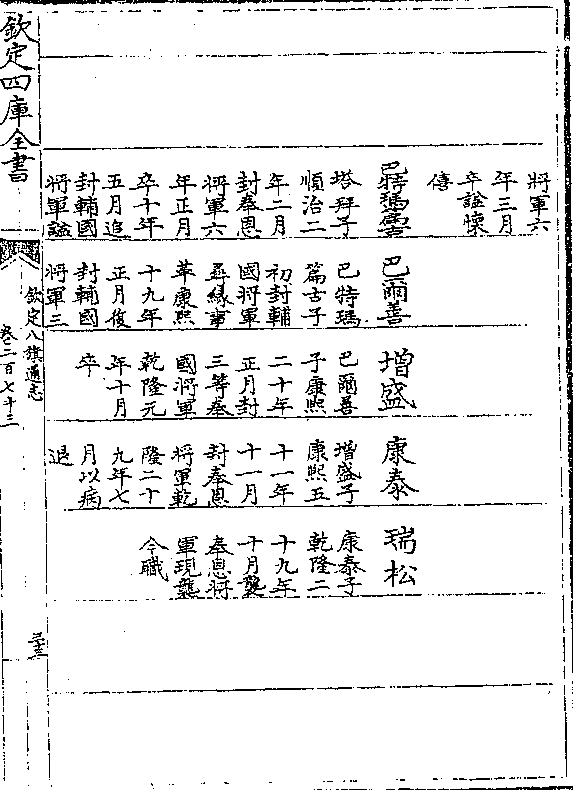 將軍六
年三月
卒諡懷
僖
巴特瑪篇古
塔拜子
順治二
年二月
封奉恩
將軍六
年正月
卒十年
五月追
封輔國
將軍諡
巴爾善
巴特瑪
篇古子
初封輔
國將軍
尋緣事
革康熙
十九年
正月復
封輔國
將軍三
增盛
巴爾善
子康熙
二十年
正月封
三等奉
國將軍
乾隆元
年十月
卒
康泰
增盛子
康熙五
十一年
十一月
封奉恩
將軍乾
隆二十
九年七
月以病
退
瑞松
康泰子
乾隆二
十九年
十月襲
奉恩將
軍現襲
今職
欽定四庫全書
欽定八旗通志
卷二百七十三